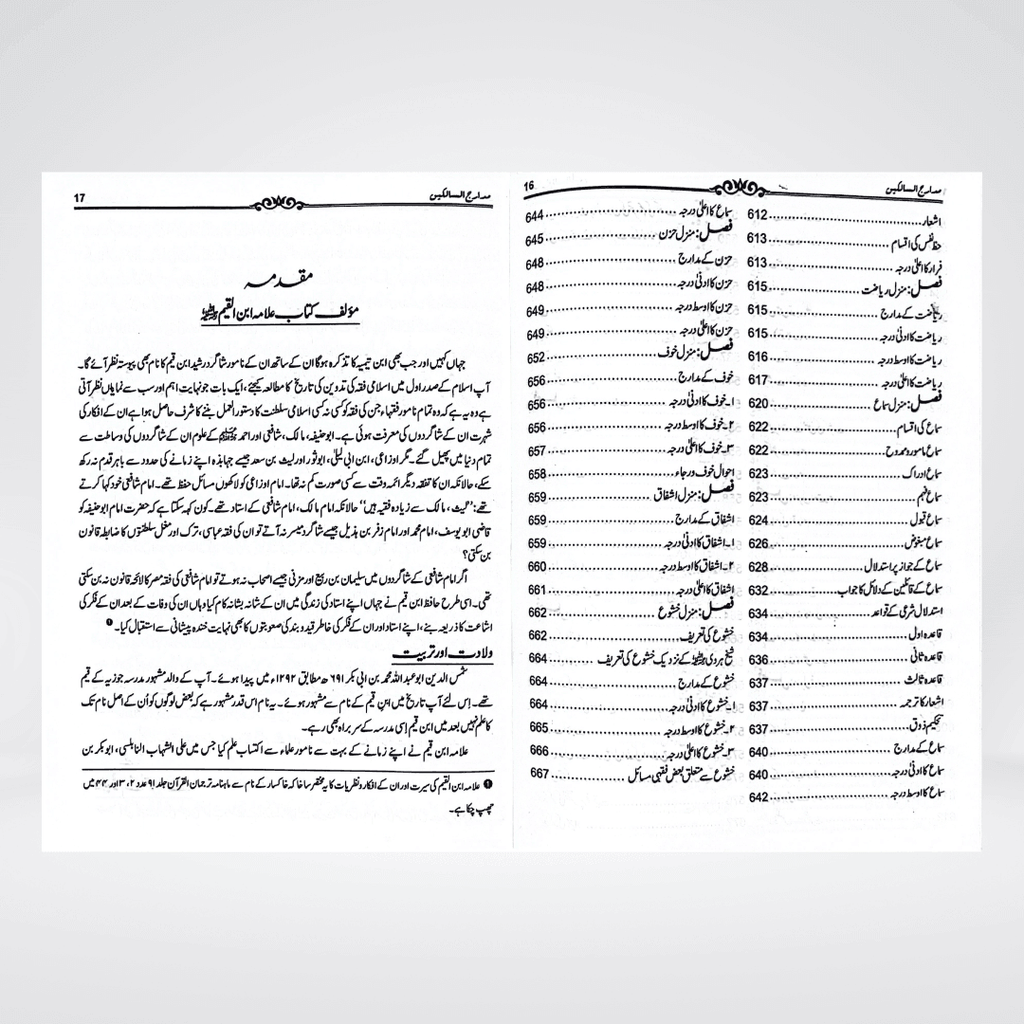 مدارج السالکین 16
اشعار 612
حظ نفس کی اقسام 613
فرار کا اعلیٰ درجہ 613
فصل: منزل ریاضت 615
ریاضت کے مدارج 615
ریاضت کا ادنیٰ درجہ 615
ریاضت کا اوسط درجہ 616
ریاضت کا اعلیٰ درجہ 617
فصل: منزل سماع 620
سماع کی اقسام 622
سماع مامور و ممدوح 622
سماع ادراک 623
سماع فہم 623
سماع قبول 624
سماع مبغوض 626
سماع کے جواز پر استدلال 628
سماع کے قائلین کے دلائل کا جواب 632
استدلال شرعی کے قواعد 634
قاعدہ اول 634
قاعدہ ثانی 636
قاعدہ ثالث 637
اشعار کا ترجمہ 637
تحکیم ذوق 637
سماع کے مدارج 640
سماع کا ادنیٰ درجہ 640
سماع کا اوسط درجہ 642
سماع کا اعلیٰ درجہ 644
فصل: منزل حزن 645
حزن کے مدارج 648
حزن کا ادنیٰ درجہ 648
حزن کا اوسط درجہ 649
حزن کا اعلیٰ درجہ 649
فصل: منزل خوف 652
خوف کے مدارج 656
۱۔ خوف کا ادنیٰ درجہ 656
۲۔ خوف کا اوسط درجہ 656
۳۔ خوف کا اعلیٰ درجہ 657
احوال خوف و رجاء 658
فصل: منزل اشفاق 659
اشفاق کے مدارج 659
۱۔ اشفاق کا ادنیٰ درجہ 659
۲۔ اشفاق کا اوسط درجہ 660
اشفاق کا اعلیٰ درجہ 661
فصل: منزل خشوع 662
خشوع کی تعریف 662
شیخ ہروی رحمہ اللہ کے نزدیک خشوع کی تعریف 664
خشوع کے مدارج 664
۱۔ خشوع کا ادنیٰ درجہ 664
۲۔ خشوع کا اوسط درجہ 665
۳۔ خشوع کا اعلیٰ درجہ 666
خشوع سے متعلق بعض فقہی مسائل 667
مدارج السالکین 17
مقدمہ
مؤلف کتاب علامہ ابن القیم رحمہ اللہ
جہاں کہیں اور جب بھی ابن تیمیہ کا تذکرہ ہوگا ان کے ساتھ ان کے نامور شاگرد رشید ابن قیم کا نام بھی پیوستہ نظر آئے گا۔
آپ اسلام کے صدر اول میں اسلامی فقہ کی تدوین کی تاریخ کا مطالعہ کیجئے، ایک بات جو نہایت اہم اور سب سے نمایاں نظر آتی
ہے وہ یہ ہے کہ وہ تمام نامور فقہاء، جن کی فقہ کو کسی نہ کسی اسلامی سلطنت کا دستور العمل بننے کا شرف حاصل ہوا ہے ان کے افکار کی
شہرت ان کے شاگردوں کی معرفت ہوئی ہے۔ ابو حنیفہ، مالک، شافعی اور احمد رحمہم اللہ کے علوم ان کے شاگردوں کی وساطت سے
تمام دنیا میں پھیل گئے۔ مگر اوزاعی، ابن ابی لیلیٰ، ابو ثور اور لیث بن سعد جیسے جہابذہ اپنے زمانے کی حدود سے باہر قدم نہ رکھ
سکے، حالانکہ ان کا تفقہ دیگر ائمہ وقت سے کسی صورت کم نہ تھا۔ امام اوزاعی کو لاکھوں مسائل حفظ تھے۔ امام شافعی خود کہا کرتے
تھے: ’’لیث، مالک سے زیادہ فقیہ ہیں‘‘ حالانکہ امام مالک، امام شافعی کے استاد تھے۔ کون کہہ سکتا ہے کہ حضرت امام ابو حنیفہ کو
قاضی ابو یوسف، امام محمد اور امام زفر بن ہذیل جیسے شاگرد میسر نہ آتے تو ان کی فقہ عباسی، ترک اور مغل سلطنتوں کا ضابطہ قانون
بن سکتی؟
اگر امام شافعی کے شاگردوں میں سلیمان بن ربیع اور مزنی جیسے اصحاب نہ ہوتے تو امام شافعی کی فقہ مصر کا لائحہ قانون نہ بن سکتی
تھی۔ اسی طرح حافظ ابن قیم نے جہاں اپنے استاد کی زندگی میں ان کے شانہ بشانہ کام کیا وہاں ان کی وفات کے بعد ان کے فکر کی
اشاعت کا ذریعہ بنے، اپنے استاد اور ان کے فکر کی خاطر قید و بند کی صعوبتوں کا بھی نہایت خندہ پیشانی سے استقبال کیا۔ ❶
ولادت اور تربیت
شمس الدین ابو عبداللہ محمد بن ابی بکر ۶۹۱ھ مطابق ۱۲۹۲ء میں پیدا ہوئے۔ آپ کے والد مشہور مدرسہ جوزیہ کے قیم
تھے۔ اس لئے آپ تاریخ میں ابن قیم کے نام سے مشہور ہوئے۔ یہ نام اس قدر مشہور ہے کہ بعض لوگوں کو ان کے اصل نام تک
کا علم نہیں بعد میں ابن قیم اسی مدرسہ کے سربراہ بھی رہے۔
علامہ ابن قیم نے اپنے زمانے کے بہت سے نامور علماء سے اکتساب علم کیا جس میں علی الشہاب النابلسی، ابو بکر بن
❶ علامہ ابن القیم کی سیرت اور ان کے افکار و نظریات کا یہ مختصر سا خاکہ خاکسار کے نام سے ماہنامہ ترجمان القرآن جلد ۹۱ عدد ۲، ۳ اور ۴ میں
چھپ چکا ہے۔